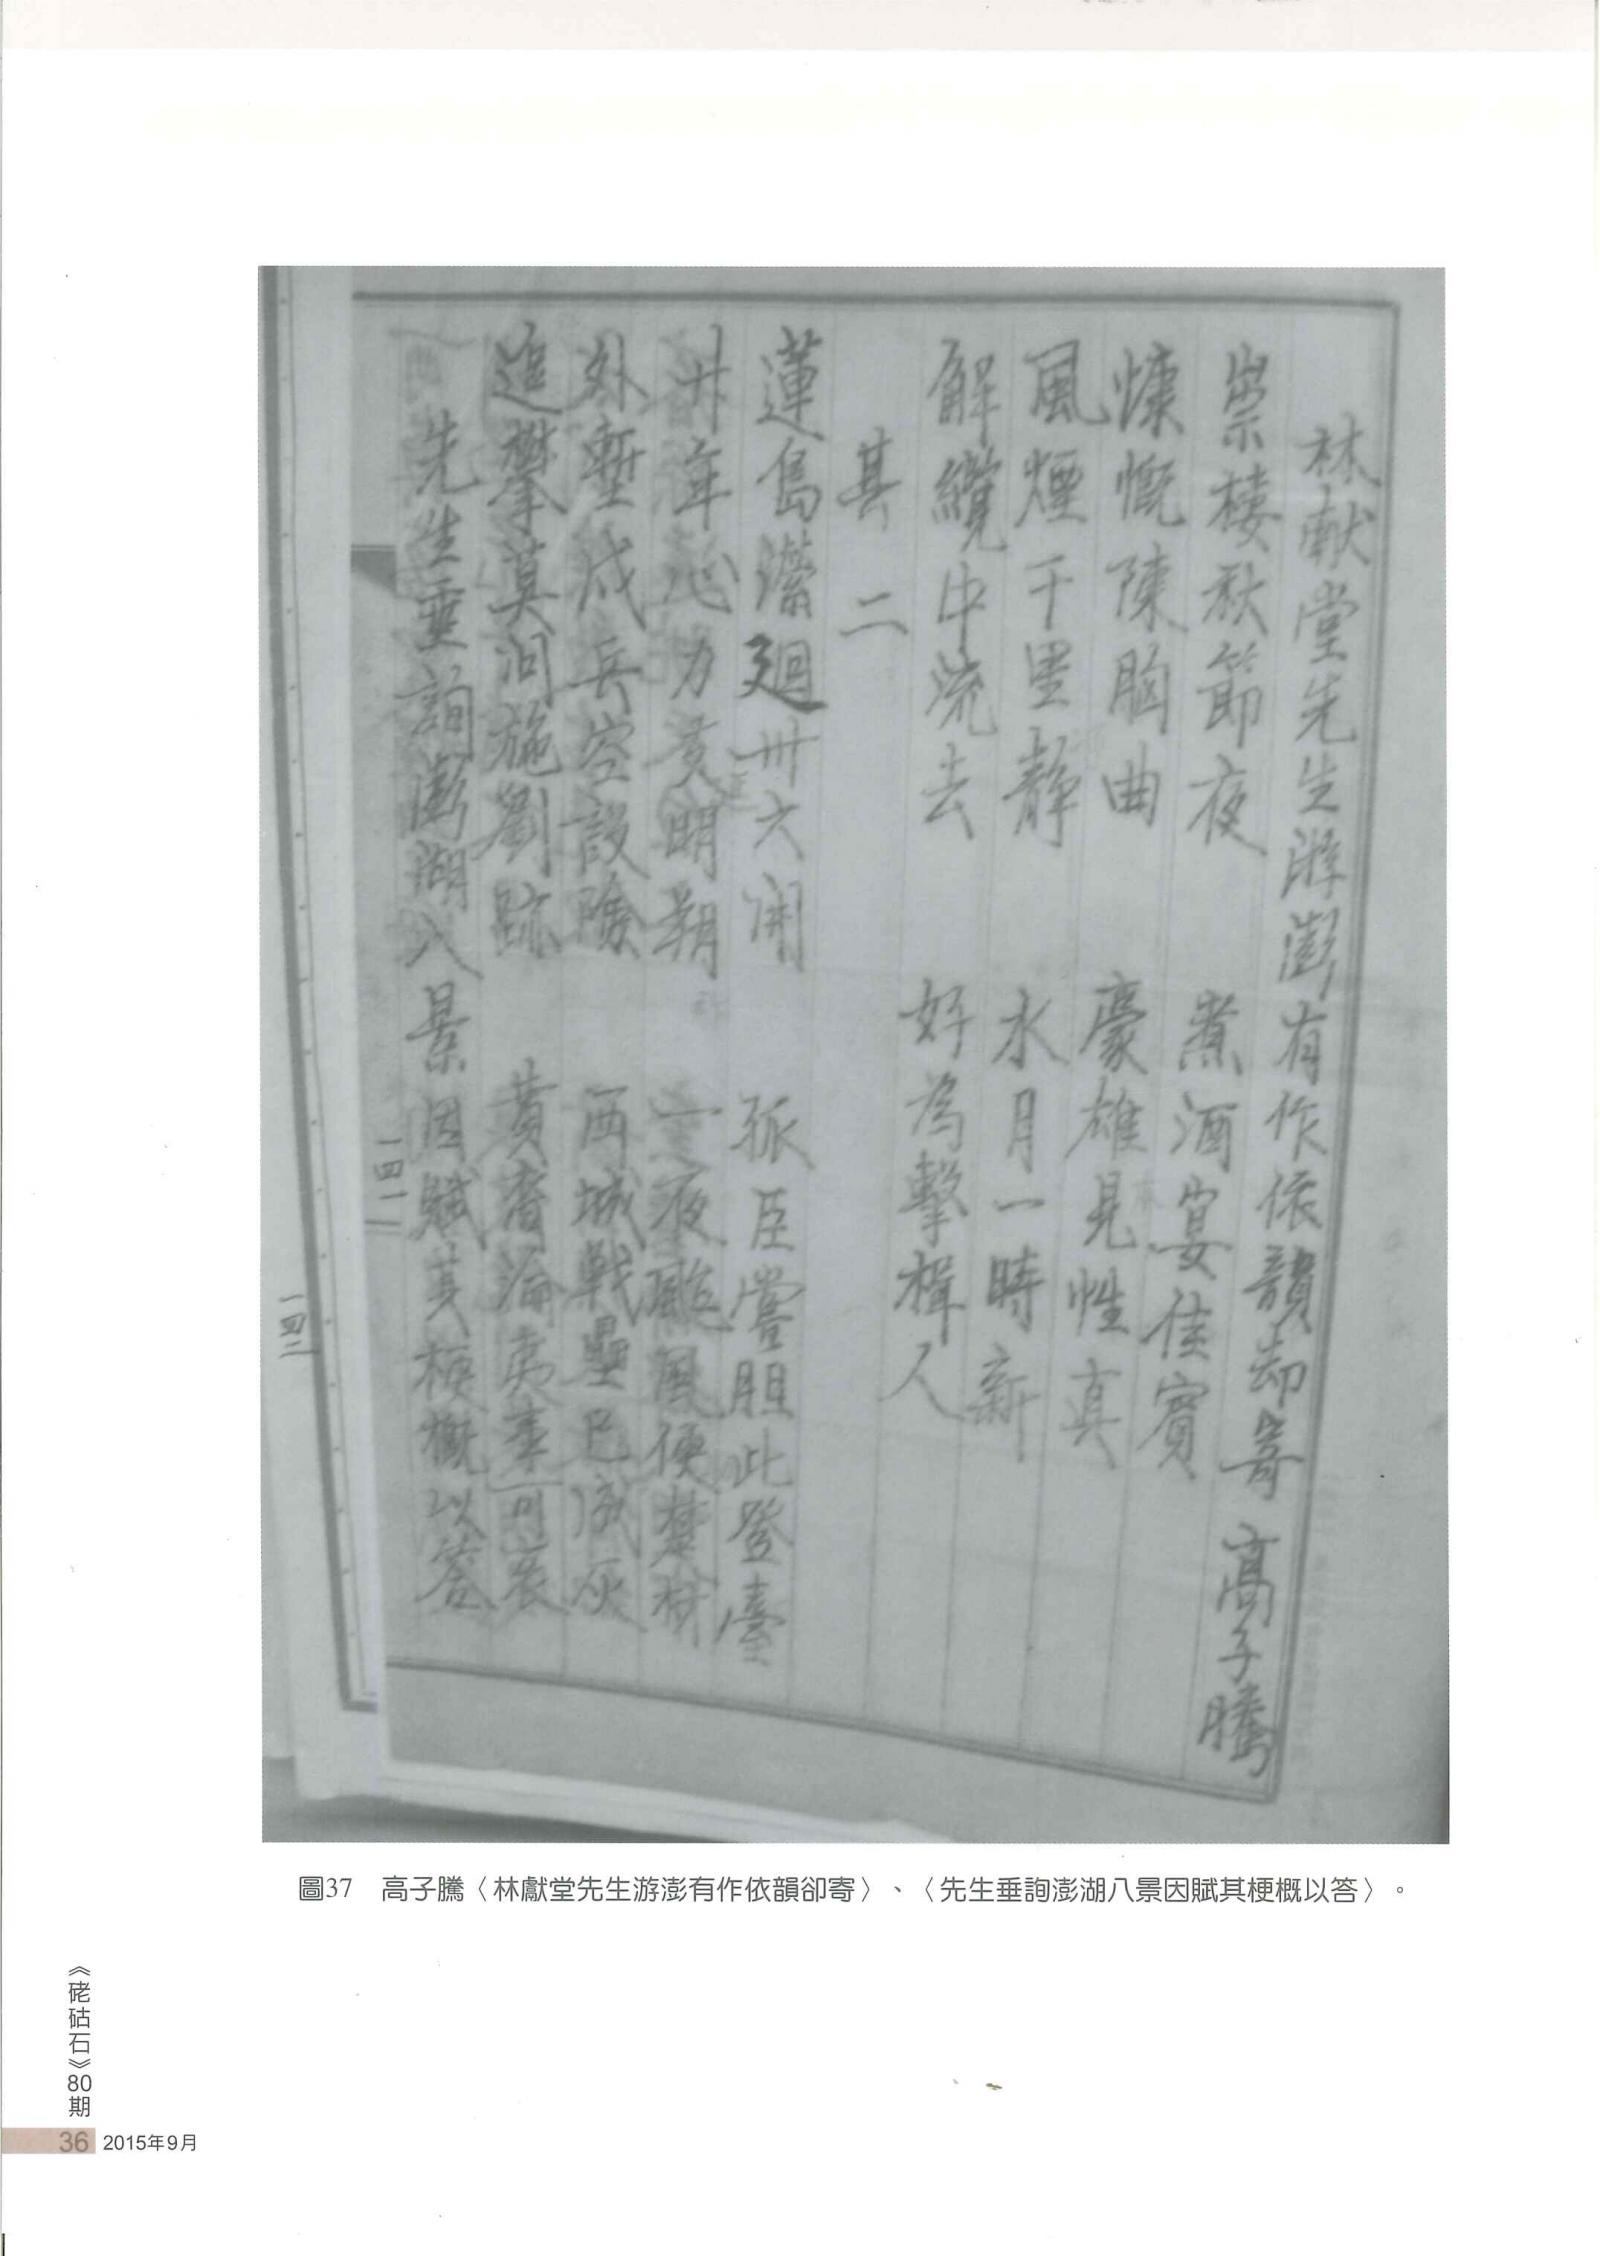 林献堂先生游澎有作依韻却寄 高子騰
崇樓秋節夜 煮酒宴佳賓
慷慨陳胸曲 豪雄見性真
風煙千里靜 水月一時新
解纜中流去 好為擊楫人
其二
蓮島濚廻卅六開 孤臣嘗胆此登臺
廿年心力 明朔 一夜颱風便
外塹成兵空設險 兩城戰壘已成灰
追攀莫問施劉跡 黃 論夷事可哀
先生垂詢澎湖八景因賦其梗概以答
一四一
一四二
圖37 高子騰〈林獻堂先生游澎有作依韻卻寄〉、〈先生垂詢澎湖八景因賦其梗概以答〉。
《硓𥑮石》80期
36 2015年9月